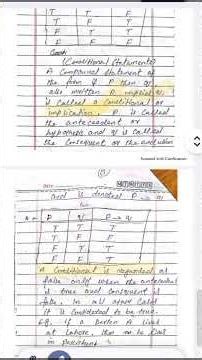 T T F
T F T
F T T
F F F
(Conditional Statements)
A Compound Statement of
the form if P then q,
also written P implies q,
is called a Conditional or
implication. P is called
the antecedent or
hypothesis and q is called
the Consequent or the conclusion
Scanned with CamScanner
and is denoted P → q
P q P → q
T T T
T F F
F T T
F F T
A Conditional is regarded as
false only if when the antecedent
is true and consequent is
false. In all other cases
it is considered to be true.
if a person A lives
at Lahore, then he lives
in pakistan